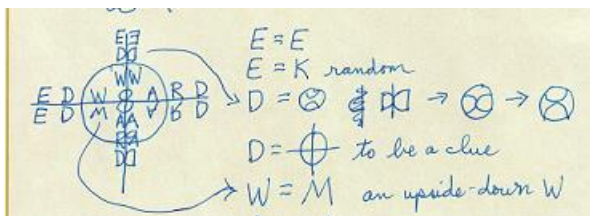 E = E
E = K random
D =
D = to be a clue
W = M an upside-down W
E D W A R D